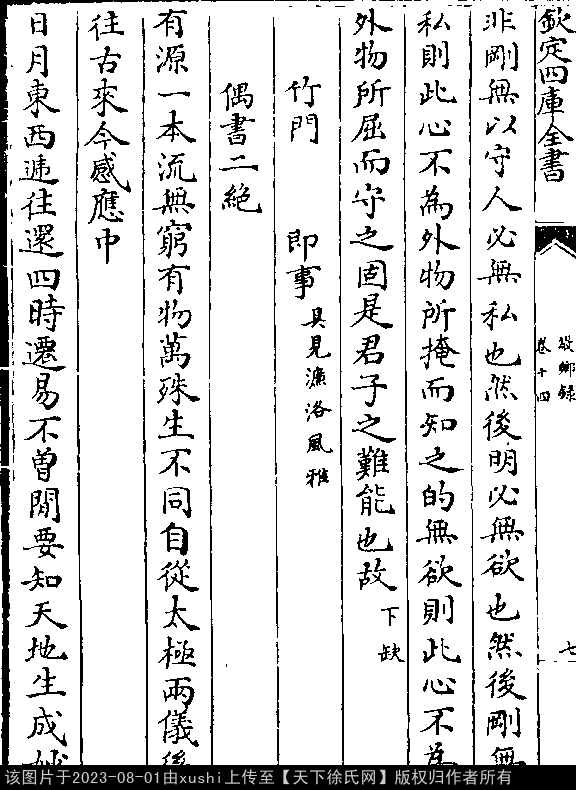 欽定四庫全書
敬鄉錄
卷十四
七
非剛無以守人必無私也然後明必無欲也然後剛無
私則此心不為外物所掩而知之的無欲則此心不為
外物所屈而守之固是君子之難能也故下缺
竹門 即事具見濂洛風雅
偶書二絶
有源一本流無窮有物萬殊生不同自從太極兩儀後
往古來今感應中
日月東西遞往還四時遷易不曽閒要知天地生成妙
该图片于2023-08-01由xushi上传至【天下徐氏网】版权归作者所有